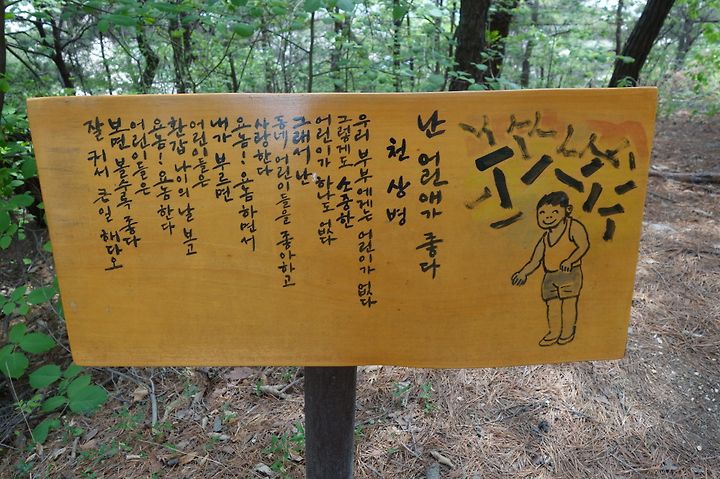 난 어린애가 좋다
천상병
우리 부부에게는 어린이가 없다
그렇게도 소중한
어린이가 하나도 없다
그래서 난
동네 어린이들을 좋아하고
사랑한다
요놈! 요놈하면서
내가 부르면
어린이들은
환갑 나이의 날 보고
요놈! 요놈한다
어린이들은
보면 볼수록 좋다
잘 커서 큰일 해다오